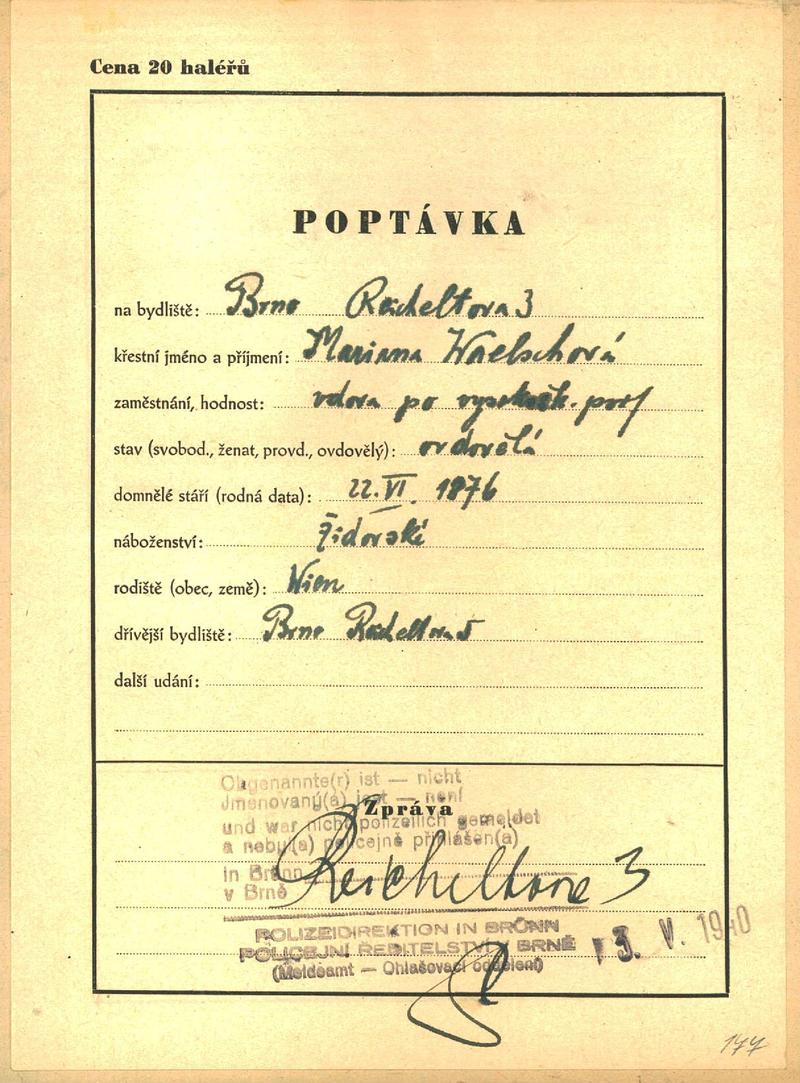 Cena 20 haléřů
POPTÁVKA
na bydliště: Brno Reicheltova 3
křestní jméno a příjmení: Mariana Waelschová
zaměstnání, hodnost: vdova po prof
stav (svobod., ženat, provd., ovdovělý): ovdovělá
domnělé stáří (rodná data): 22. VI. 1876
náboženství: židovské
rodiště (obec, země): Wien
dřívější bydliště: Brno Reicheltova 5
další udání:
Obgenannte(r) ist — nicht
Jmenovaný(á) jest — není
Zpráva
und war nicht polizeilich gemeldet
a nebyl(a) policejně přihlášen(a)
in Brünn
v Brně
Reicheltova 3
POLIZEIDIREKTION IN BRÜNN
POLICEJNÍ ŘEDITELSTVÍ V BRNĚ
(Meldeamt — Ohlašovací oddělení)
13. V. 1940
177